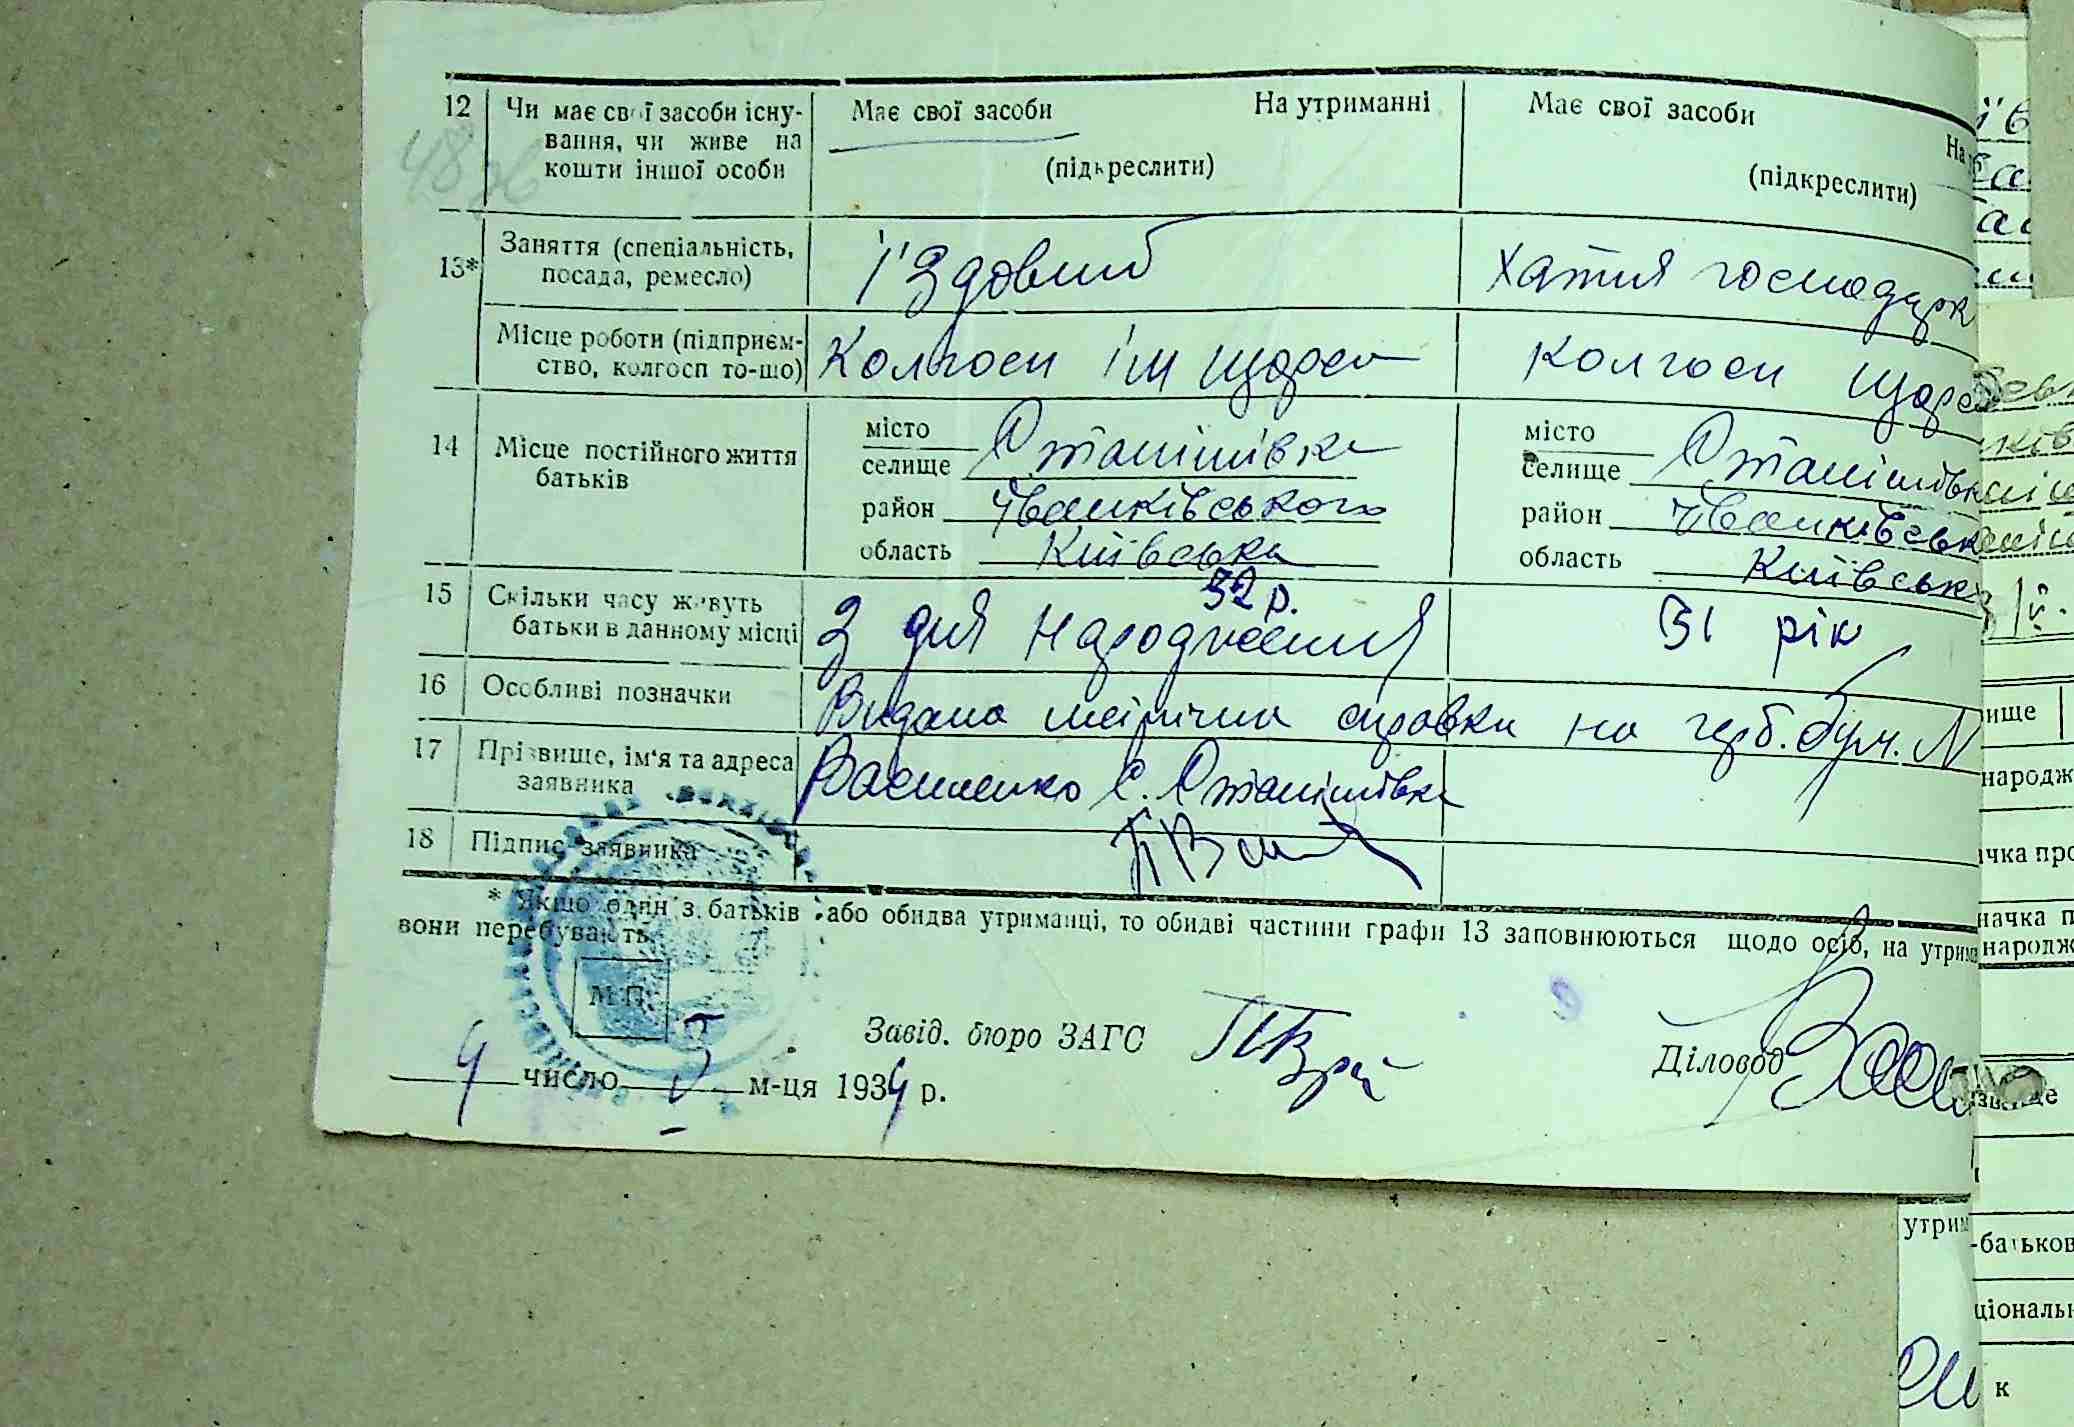 12 Чи має свої засоби існу- Має свої засоби На утриманні Має свої засоби
вання, чи живе на На
кошти іншої особи (підкреслити) (підкреслити)
13* Заняття (спеціальність, їздовий хатня господарк
посада, ремесло)
Місце роботи (підприєм- Колгосп ім Щорса колгосп Щорса
ство, колгосп то-що)
14 Місце постійного життя місто місто
батьків селище Оташівка селище
район Іванківського район Іванківськ
область Київська область Київськ
15 Скільки часу живуть 32 р.
батьки в данному місці З дня народження 31 рік
16 Особливі позначки Видана метрична справка на герб. бум. N
17 Прізвище, ім'я та адреса Василенко с.
заявника
18 Підпис заявника
* Якщо один з батьків або обидва утриманці, то обидві частини графи 13 заповнюються щодо осіб, на утрим
вони перебувають.
М.П.
Завід. бюро ЗАГС Діловод
9 число V м-ця 1939 р.
ище
народж
чка про
начка п
народж
утрим
-батьков
ціональн
к